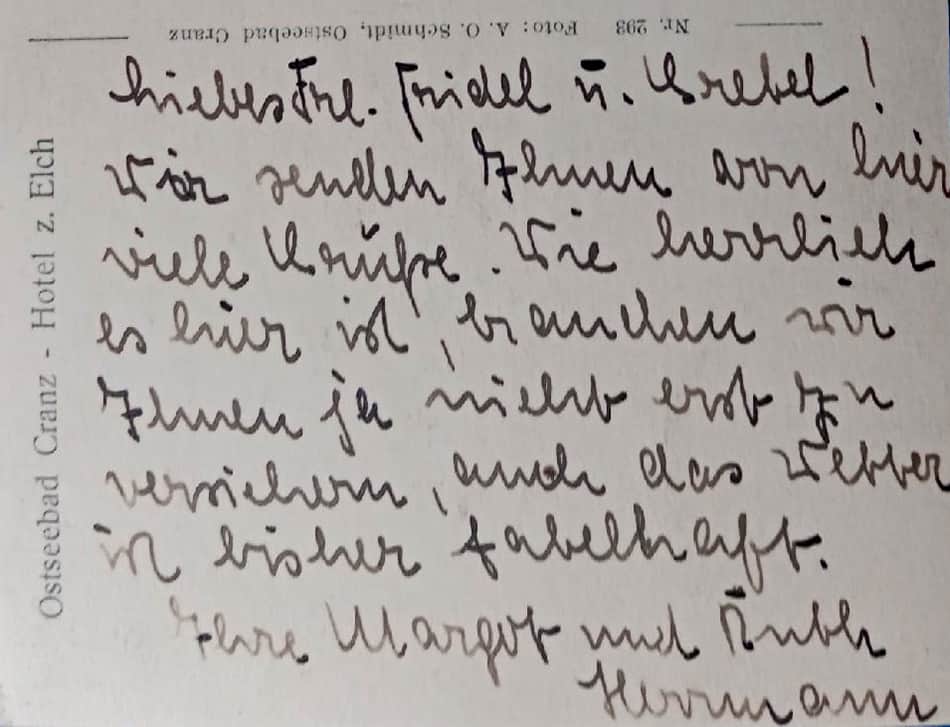 Nr. 293 Foto: A. O. Schmidt, Ostseebad Cranz
Ostseebad Cranz - Hotel z. Elch
Liebes Frl. Friedel u. Gretel!
Wir senden Ihnen von hier
viele Grüße. Wie herrlich
es hier ist, brauchen wir
Ihnen ja nicht erst zu
versichern, auch das Wetter
ist bisher fabelhaft.
Ihre Margot und Ruth
Herrmann